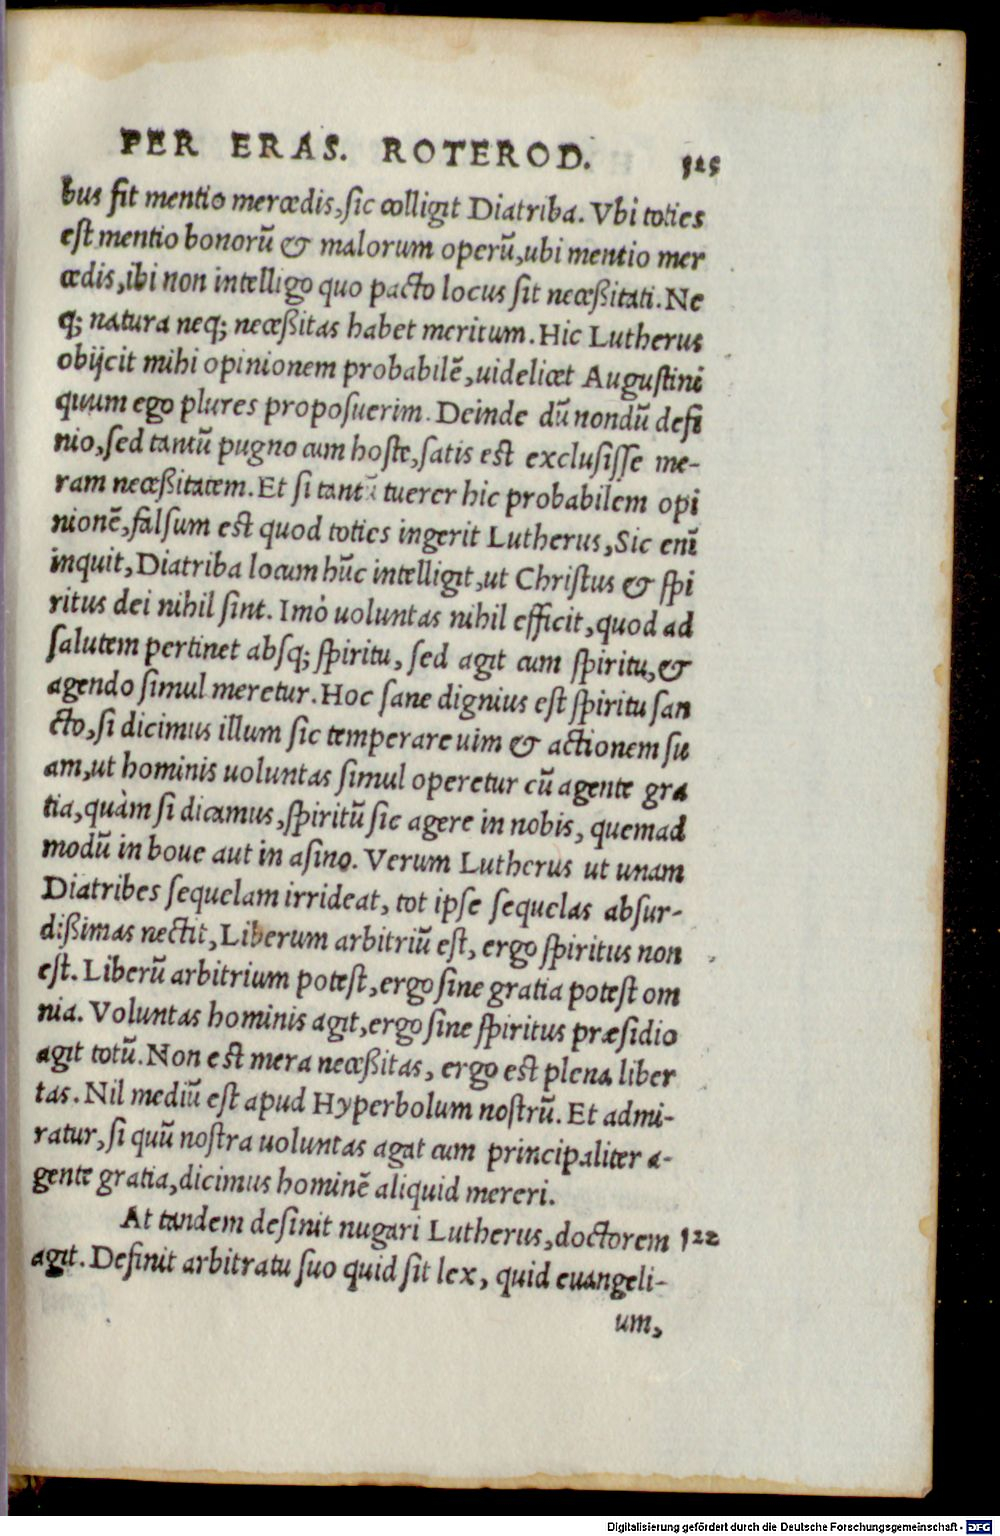 PER ERAS. ROTEROD. 325
bus fit mentio mercedis, sic colligit Diatriba. Vbi toties
est mentio bonorũ & malorum operũ, ubi mentio mer
cedis, ibi non intelligo quo pacto locus sit neceßitati. Ne
q; natura neq; neceßitas habet meritum. Hic Lutherus
obijcit mihi opinionem probabilẽ, uidelicet Augustini
quum ego plures proposuerim. Deinde dũ nondũ defi
nio, sed tantũ pugno cum hoste, satis est exclusisse me-
ram neceßitatem. Et si tantũ tuerer hic probabilem opi
nionẽ, falsum est quod toties ingerit Lutherus, Sic enĩ
inquit, Diatriba locum hũc intelligit, ut Christus & spi
ritus dei nihil sint. Imò uoluntas nihil efficit, quod ad
salutem pertinet absq; spiritu, sed agit cum spiritu, &
agendo simul meretur. Hoc sane dignius est spiritu san
cto, si dicimus illum sic temperare uim & actionem su
am, ut hominis uoluntas simul operetur cũ agente gra
tia, quàm si dicamus, spiritũ sic agere in nobis, quemad
modũ in boue aut in asino. Verum Lutherus ut unam
Diatribes sequelam irrideat, tot ipse sequelas absur-
dißimas nectit, Liberum arbitriũ est, ergo spiritus non
est. Liberũ arbitrium potest, ergo sine gratia potest om
nia. Voluntas hominis agit, ergo sine spiritus præsidio
agit totũ. Non est mera neceßitas, ergo est plena liber
tas. Nil mediũ est apud Hyperbolum nostrũ. Et admi-
ratur, si quũ nostra uoluntas agat cum principaliter a-
gente gratia, dicimus hominẽ aliquid mereri.
At tandem desinit nugari Lutherus, doctorem 122
agit. Definit arbitratu suo quid sit lex, quid euangeli-
um,
Digitalisierung gefördert durch die Deutsche Forschungsgemeinschaft - DFG